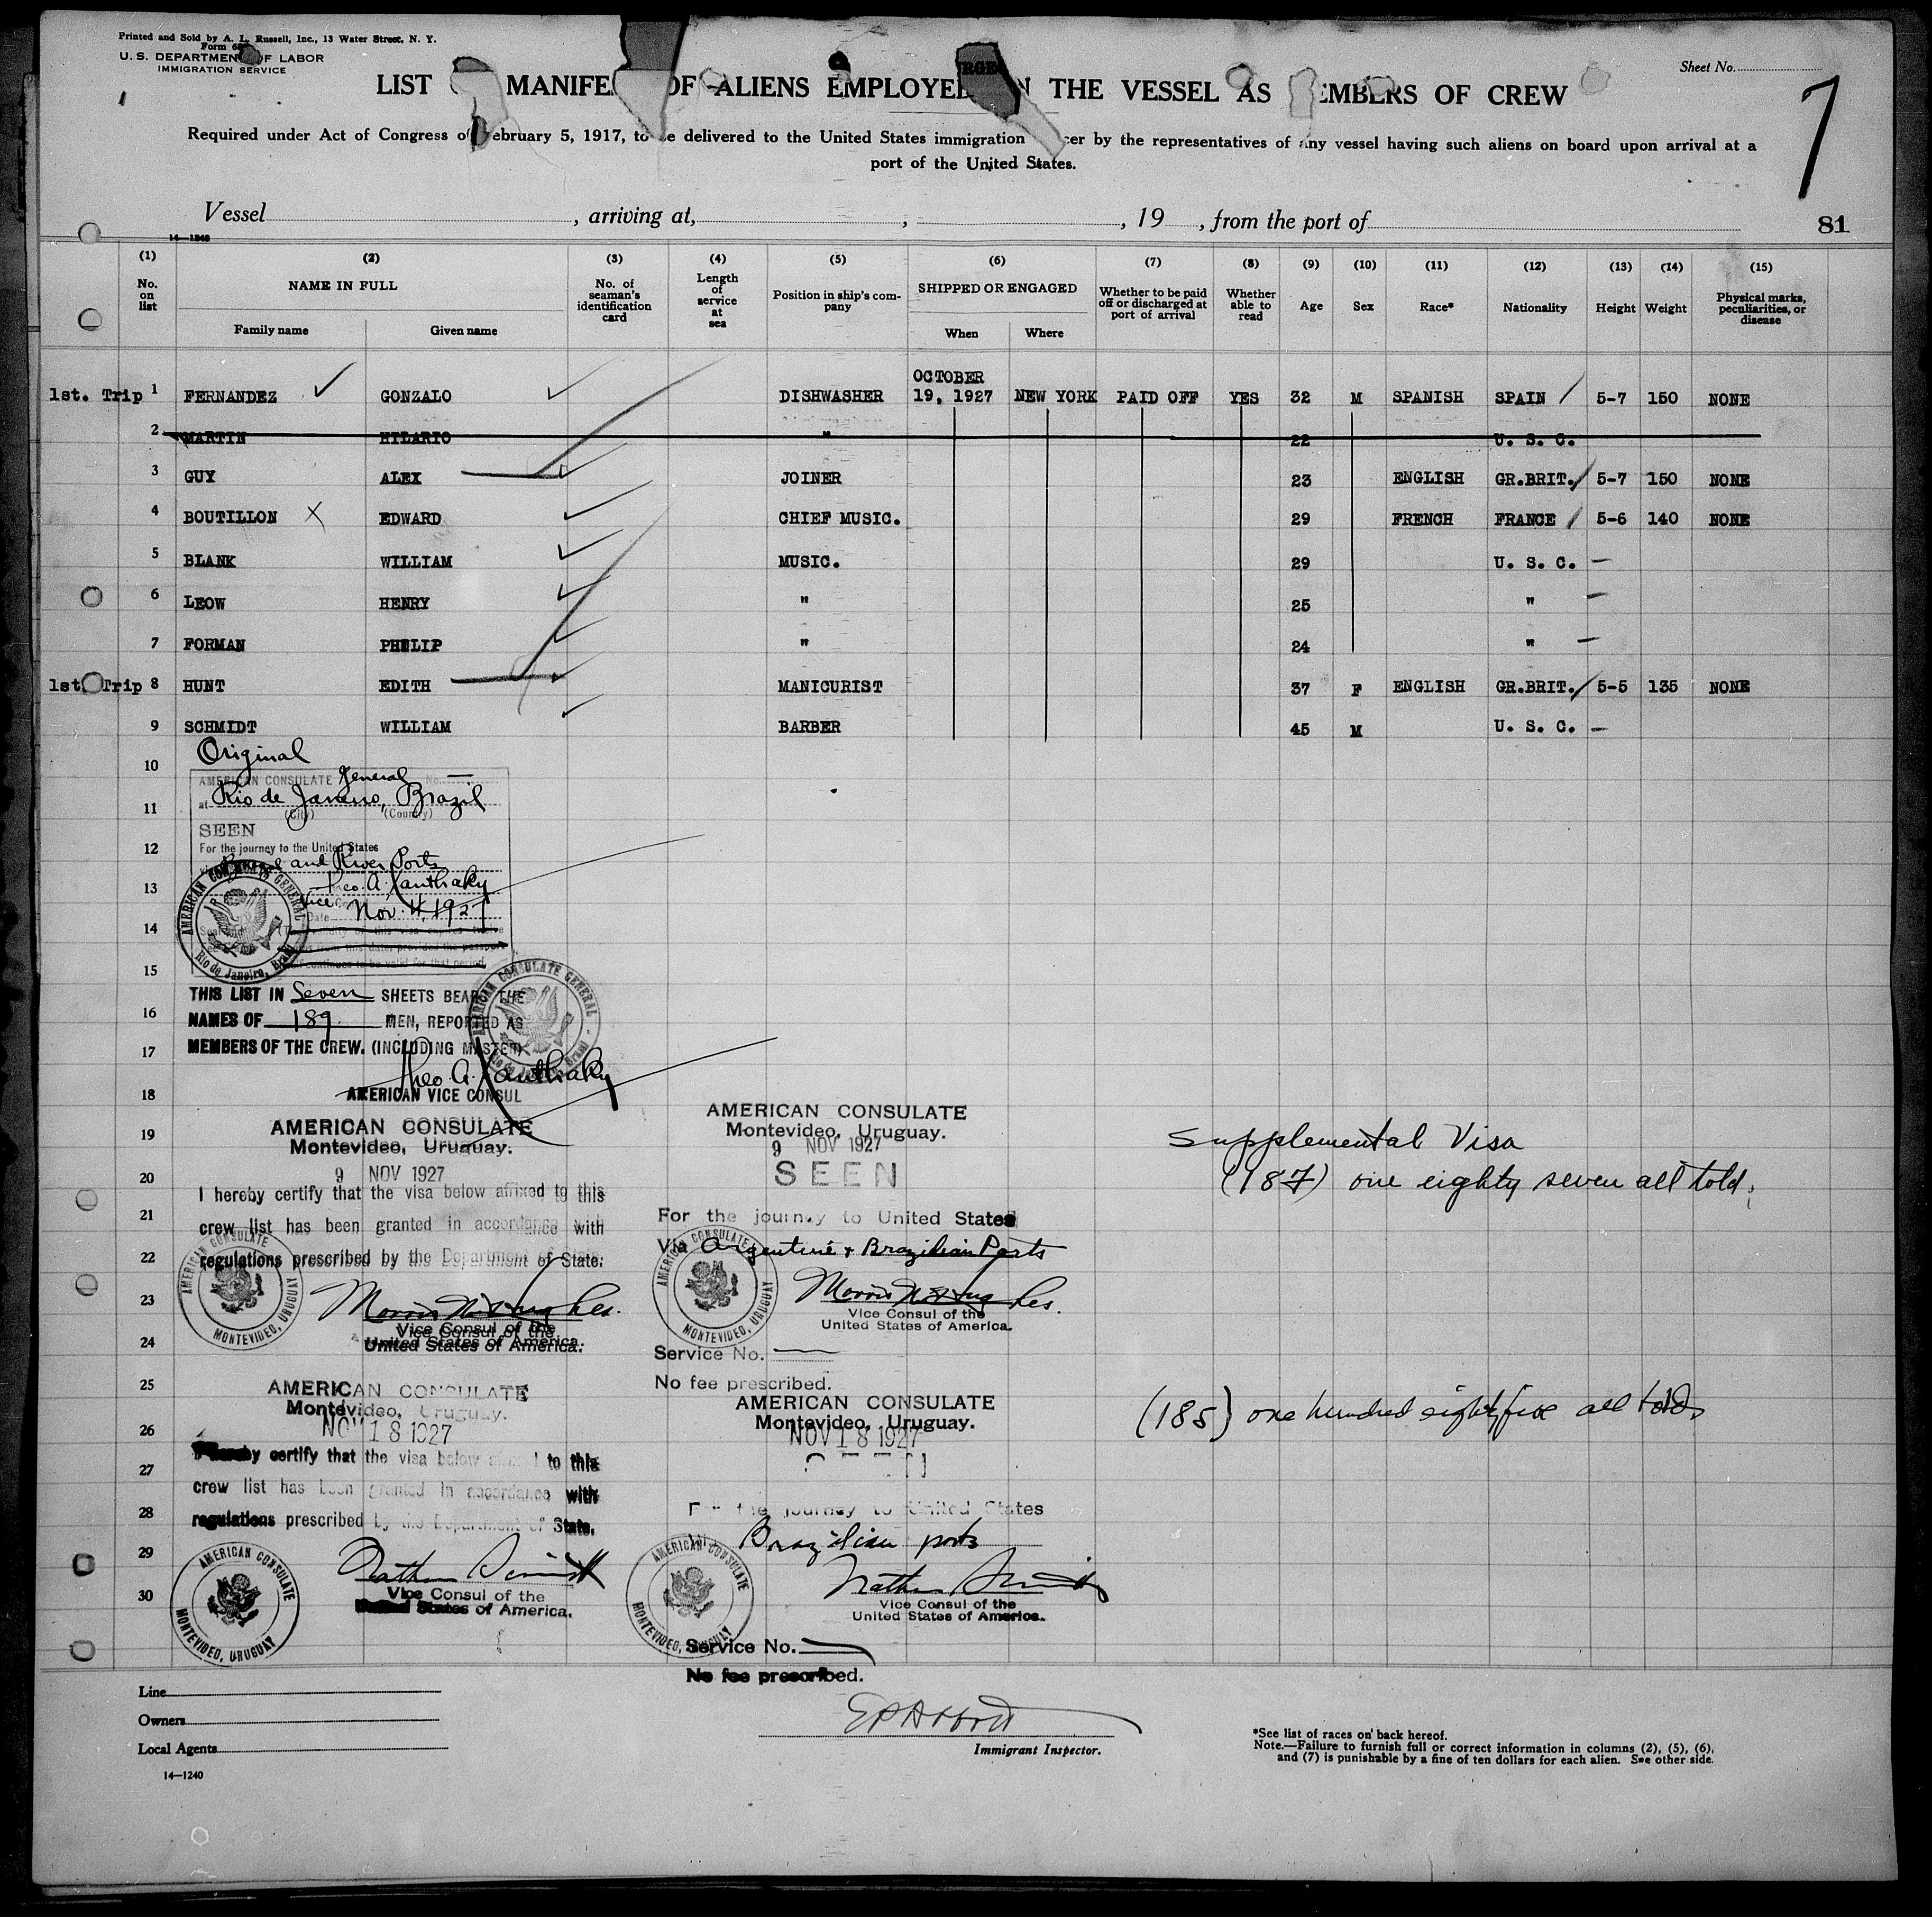 Printed and Sold by A. L. Russell, Inc., 13 Water Street, N. Y.
Form
U. S. DEPARTMENT OF LABOR
IMMIGRATION SERVICE
Sheet No.
7
LIST MANIFE OF ALIENS EMPLOYED ON THE VESSEL AS MEMBERS OF CREW
Required under Act of Congress of February 5, 1917, to be delivered to the United States immigration cer by the representatives of any vessel having such aliens on board upon arrival at a
port of the United States.
Vessel , arriving at, , , 19 , from the port of
81
14—1240
(1) (2) (3) (4) (5) (6) (7) (8) (9) (10) (11) (12) (13) (14) (15)
No. on list NAME IN FULL No. of seaman's identification card Length of service at sea Position in ship's company SHIPPED OR ENGAGED Whether to be paid off or discharged at port of arrival Whether able to read Age Sex Race* Nationality Height Weight Physical marks, peculiarities, or disease
Family name Given name When Where
1st. Trip 1 FERNANDEZ GONZALO DISHWASHER OCTOBER 19, 1927 NEW YORK PAID OFF YES 32 M SPANISH SPAIN 5-7 150 NONE
2 MARTIN HILARIO " 22 U. S. C.
3 GUY ALEX JOINER 23 ENGLISH GR.BRIT. 5-7 150 NONE
4 BOUTILLON EDWARD CHIEF MUSIC. 29 FRENCH FRANCE 5-6 140 NONE
5 BLANK WILLIAM MUSIC. 29 U. S. C. —
6 LEOW HENRY " 25 " —
7 FORMAN PHILIP " 24 " —
1st. Trip 8 HUNT EDITH MANICURIST 37 F ENGLISH GR.BRIT. 5-5 135 NONE
9 SCHMIDT WILLIAM BARBER 45 M U. S. C. —
Original
10
AMERICAN CONSULATE General No. —
at Rio de Janeiro, Brazil
11
(City) (Country)
SEEN
12
For the journey to the United States
and River Ports
13
Theo. A. Xanthaky
Vice
Date Nov. 4, 1927
14
15
AMERICAN CONSULATE GENERAL
Rio de Janeiro, Brazil
THIS LIST IN Seven SHEETS BEARS THE
16
NAMES OF 189 MEN, REPORTED AS
17
MEMBERS OF THE CREW. (INCLUDING MASTER)
AMERICAN CONSULATE GENERAL
Theo. A. Xanthaky
18
AMERICAN VICE CONSUL
19
AMERICAN CONSULATE
Montevideo, Uruguay.
9 NOV 1927
20
I hereby certify that the visa below affixed to this
21
crew list has been granted in accordance with
22
regulations prescribed by the Department of State.
AMERICAN CONSULATE
MONTEVIDEO, URUGUAY
23
Morris N. Hughes.
Vice Consul of the
24
United States of America.
AMERICAN CONSULATE
Montevideo, Uruguay.
9 NOV 1927
SEEN
For the journey to United States
Via Argentine & Brazilian Ports
AMERICAN CONSULATE
MONTEVIDEO, URUGUAY
Morris N. Hughes.
Vice Consul of the
United States of America.
Service No. —
No fee prescribed.
Supplemental Visa
(187) one eighty seven all told.
25
AMERICAN CONSULATE
Montevideo, Uruguay.
26
NOV 18 1927
hereby certify that the visa below to this
27
crew list has been granted in accordance with
28
regulations prescribed by the Department of State.
29
AMERICAN CONSULATE
MONTEVIDEO, URUGUAY
30
Vice Consul of the
United States of America.
AMERICAN CONSULATE
Montevideo, Uruguay.
NOV 18 1927
For the journey to United States
Brazilian ports
AMERICAN CONSULATE
MONTEVIDEO, URUGUAY
Vice Consul of the
United States of America.
Service No.
No fee prescribed.
(185) one hundred eighty five all told
Line
Owners
Local Agents
14—1240
Immigrant Inspector.
*See list of races on back hereof.
Note.—Failure to furnish full or correct information in columns (2), (5), (6),
and (7) is punishable by a fine of ten dollars for each alien. See other side.